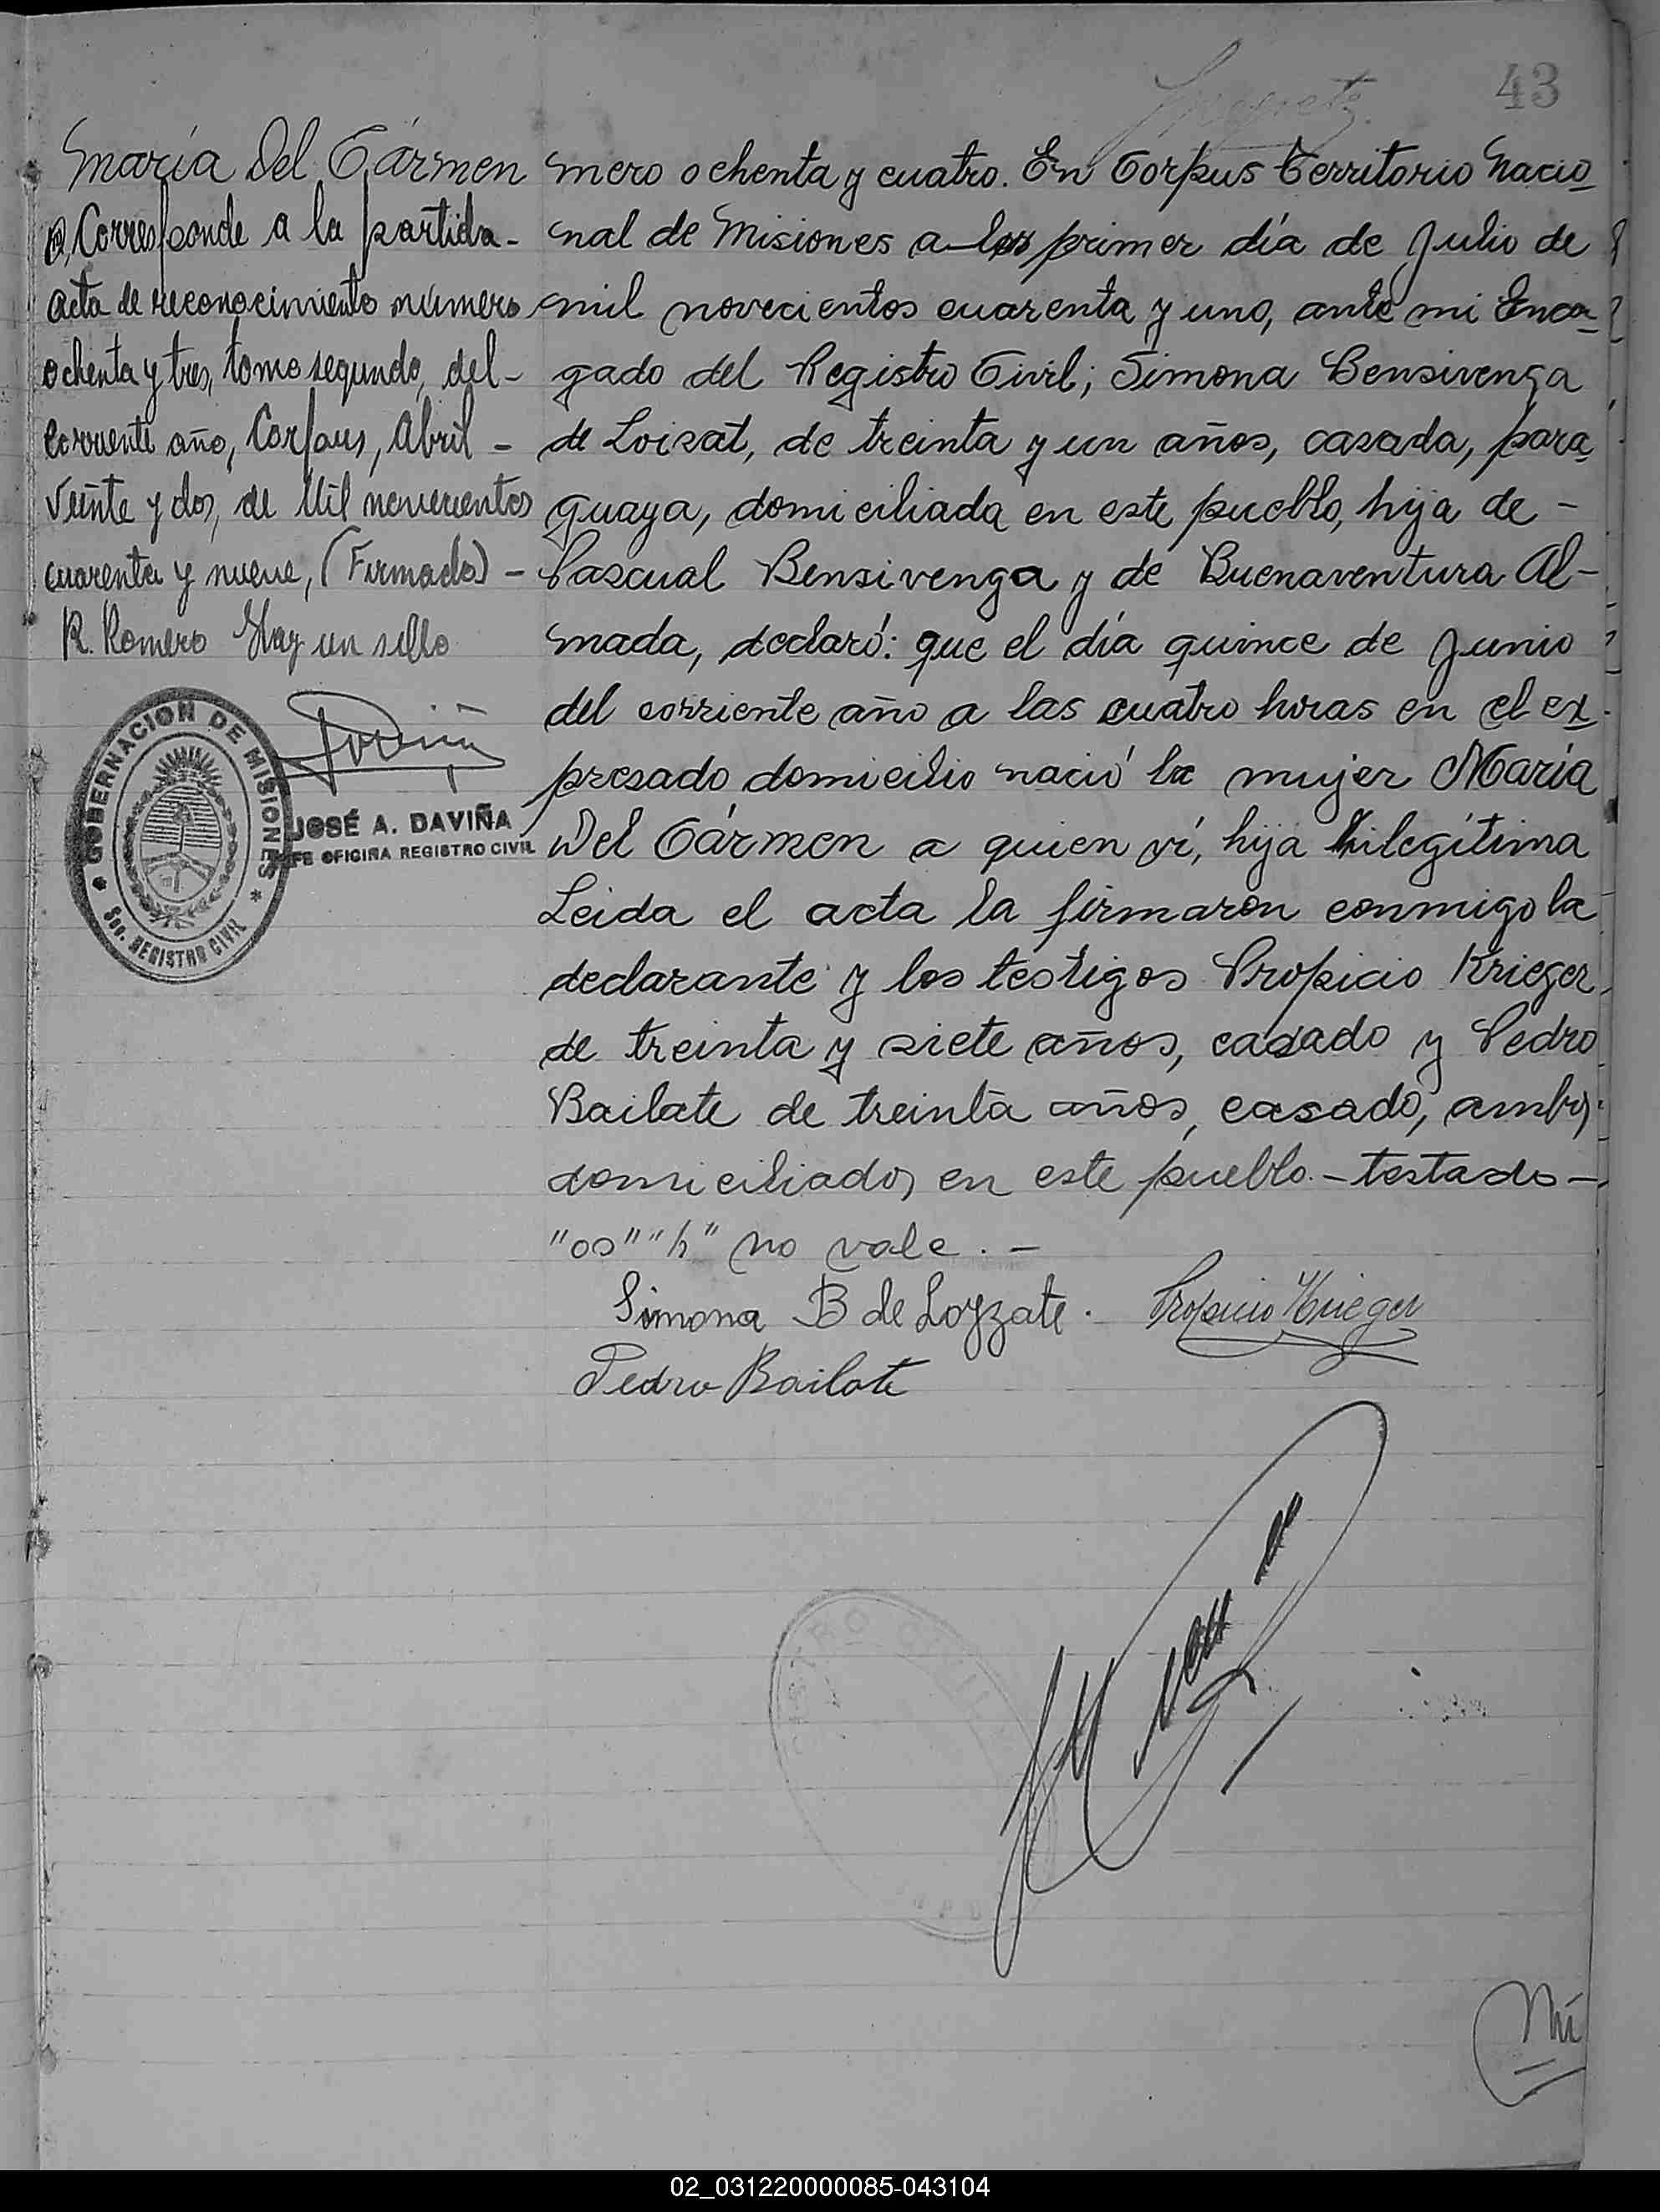 43
María Del Cármen
Corresponde a la partida-
acta de reconocimiento número
ochenta y tres, tomo segundo, del-
corriente año, Corpus, Abril -
veinte y dos, de Mil novecientos
cuarenta y nueve, (Firmado) -
R. Romero Hay un sello
GOBERNACION DE MISIONES
Sec. REGISTRO CIVIL
JOSÉ A. DAVIÑA
JEFE OFICINA REGISTRO CIVIL
mero ochenta y cuatro. En Corpus Territorio Nacio-
nal de Misiones a los primer día de Julio de
mil novecientos cuarenta y uno, ante mi Enca-
gado del Registro Civil; Simona Bensivenga
de Loisat, de treinta y un años, casada, para-
guaya, domiciliada en este pueblo, hija de -
Pascual Bensivenga y de Buenaventura Al-
mada, declaró: que el día quince de Junio
del corriente año a las cuatro horas en el ex-
presado domicilio nació la mujer María
Del Cármen a quien ví, hija h ilegítima
Leida el acta la firmaron conmigo la
declarante y los testigos Propicio Krieger
de treinta y siete años, casado y Pedro
Bailate de treinta años, casado, ambos
domiciliados en este pueblo. - testado -
"os" "h" no vale. -
Simona B de Loyzate. Propicio Krieger
Pedro Bailate
Nú
02_031220000085-043104